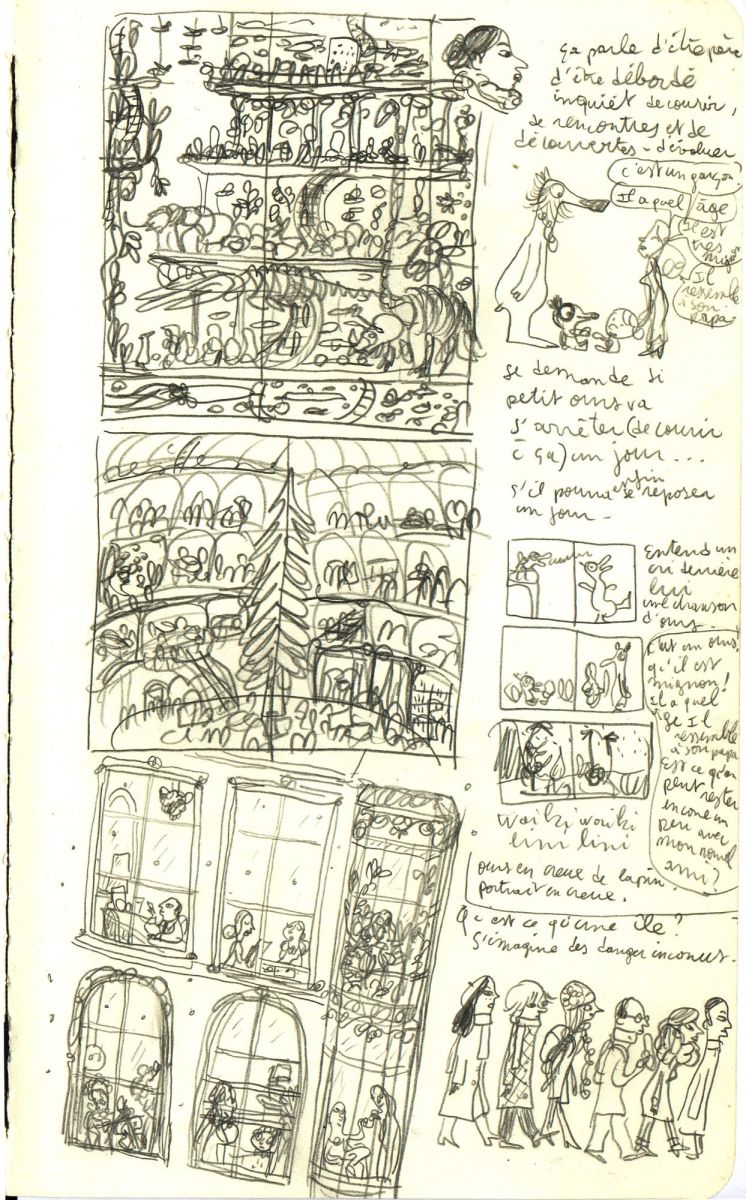 ça parle d'être père
d'être débordé
inquiet de courir,
de rencontres et de
découvertes - d'évoluer
c'est un garçon?
Il a quel âge
Il est
très
mignon
Il
ressemble
à son
papa
se demande si
petit ours va
s'arrêter (de courir
ça) un jour...
s'il pourra enfin se reposer
un jour -
entend un
cri derrière
lui
une chanson
d'ours
c'est un ours,
qu'il est
mignon!
Il a quel
âge Il
ressemble
à son papa
Est ce qu'on
peut rester
encore un
peu avec
mon nouvel
ami?
ours en creux de lapin.
portrait en creux.
Qu'est ce qu'une île?
S'imagine des danger inconnus.